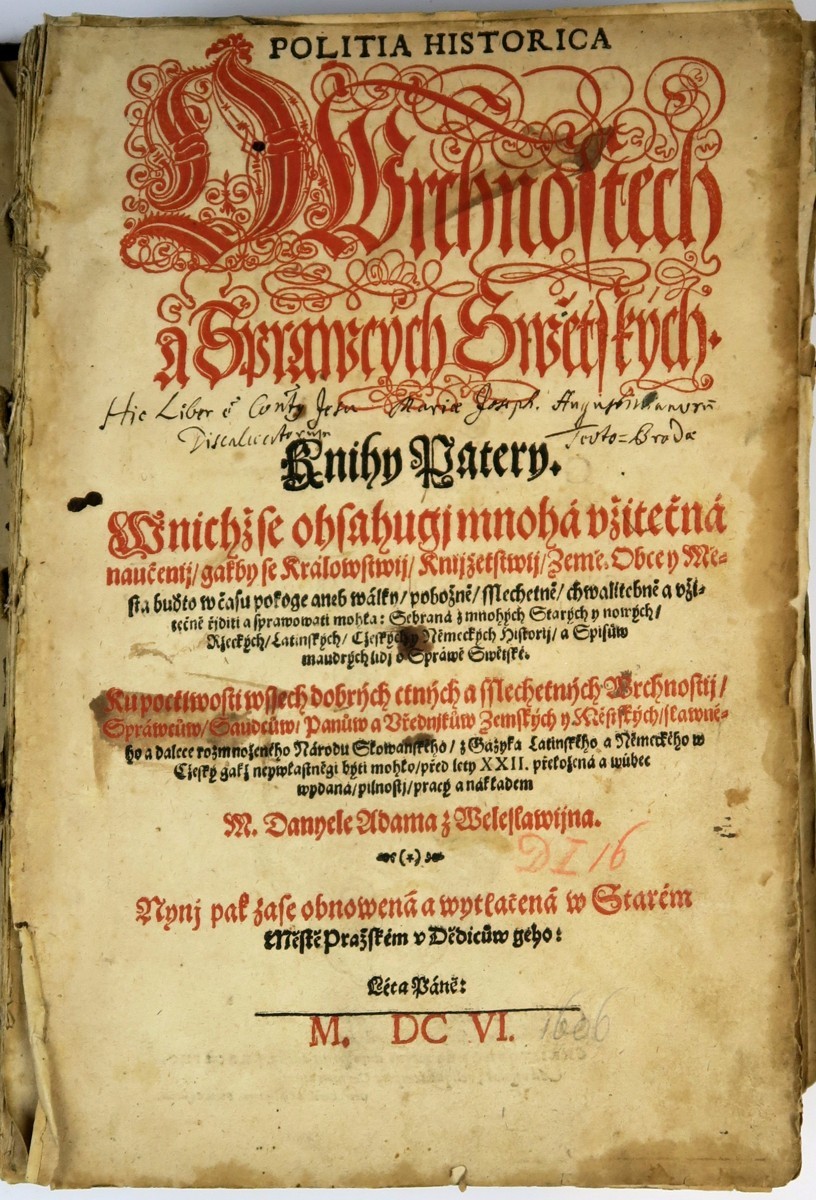 POLITIA HISTORICA
O Wrchnostech
a Spráwcých Swětských.
Hic Liber ē Contus Jesu Mariæ Joseph. Augustinianorū
Discalceatorum Teuto=Brodæ
Knihy Patery.
W nichž se obsahugj mnohá vžitečná
naučenij/ gakby se Králowstwij/ Knijžetstwij/ Země. Obce y Mě-
sta buďto w času pokoge aneb wálky/ pobožně/ sslechetně/ chwalitebně a vži-
tečně řijditi a sprawowati mohla: Sebraná z mnohých Starých y nowých/
Ržeckých/ Latinských/ Cžeských y Německých Historij/ a Spisůw
maudrých lidj o Spráwě Swětské.
Ku poctiwosti wssech dobrých ctných a sslechetných Wrchnostij/
Spráwcůw/ Saudcůw/ Panůw a Vřednjkůw Zemských y Městských/ slawné-
ho a dalece rozmnoženého Národu Slowanského/ z Gazyka Latinského a Německého w
Cžeský gakž neywlastněgi býti mohlo/ před lety XXII. přeložená a wůbec
wydaná/ pilnostj/ pracý a nákladem
M. Danyele Adama z Weleslawijna.
(*)
D I 16
Nynj pak zase obnowená a wytlačená w Starém
Městě Pražském v Dědicůw geho:
Léta Páně:
M. DC VI. 1606